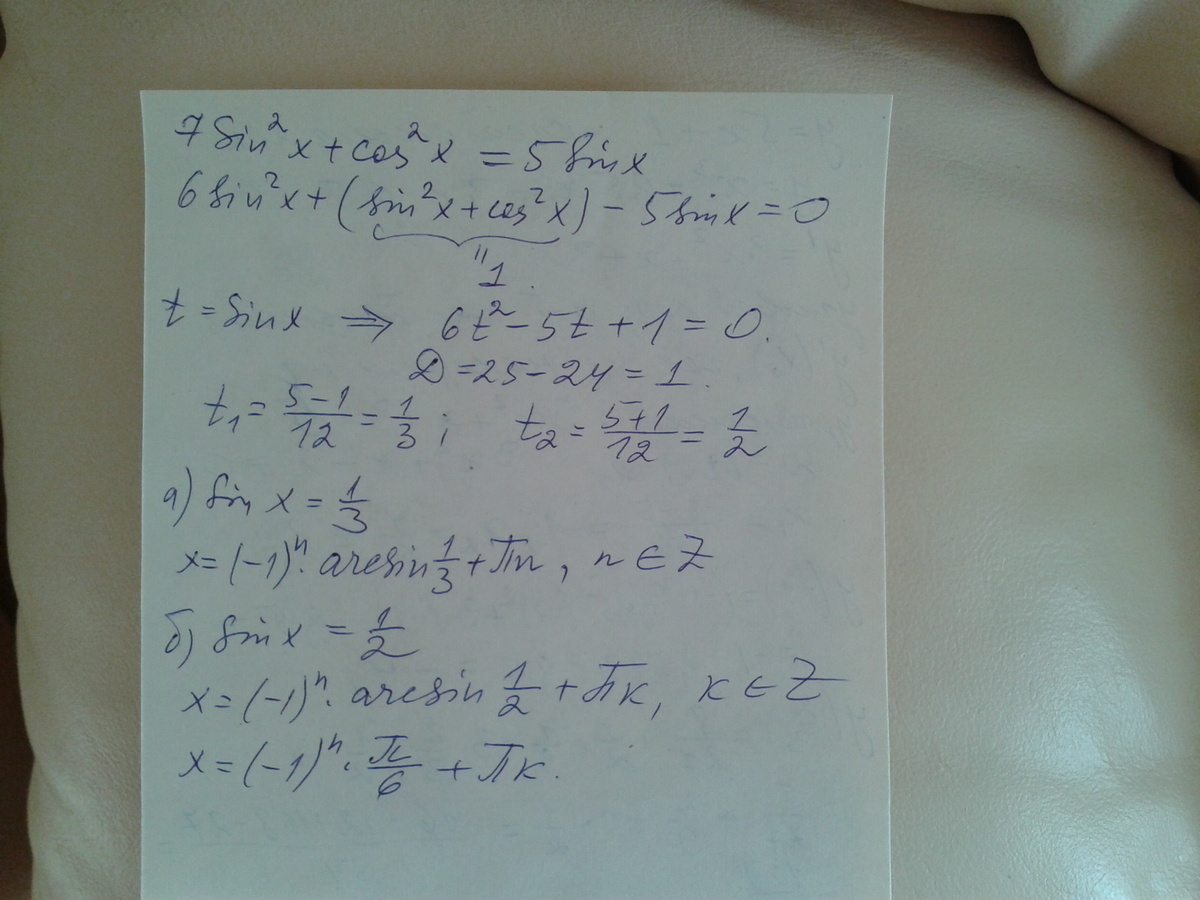 7 sin²x + cos²x = 5 sin x
6 sin²x + (sin²x + cos²x) - 5 sin x = 0
"1.
t = sin x ⇒ 6t² - 5t + 1 = 0.
D = 25 - 24 = 1.
t₁ = (5-1)/12 = 1/3 ; t₂ = (5+1)/12 = 1/2
а) sin x = 1/3
x = (-1)ⁿ · arcsin 1/3 + πn, n ∈ Z
б) sin x = 1/2
x = (-1)ⁿ · arcsin 1/2 + πк, к ∈ Z
x = (-1)ⁿ · π/6 + πк.